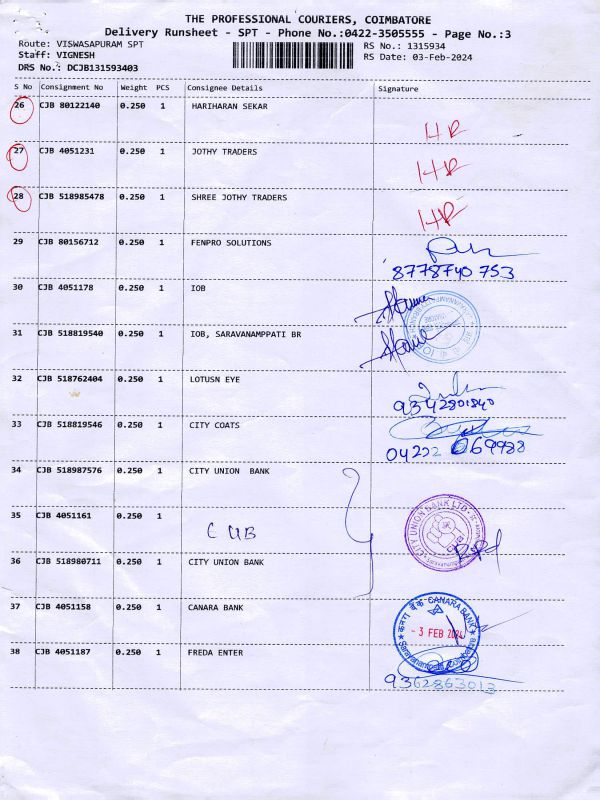 THE PROFESSIONAL COURIERS, COIMBATORE
Delivery Runsheet - SPT - Phone No.:0422-3505555 - Page No.:3
Route: VISWASAPURAM SPT
RS No.: 1315934
Staff: VIGNESH
RS Date: 03-Feb-2024
DRS No.: DCJB131593403
S No Consignment No Weight PCS Consignee Details Signature
26 CJB 80122140 0.250 1 HARIHARAN SEKAR
HR
27 CJB 4051231 0.250 1 JOTHY TRADERS
HR
28 CJB 518985478 0.250 1 SHREE JOTHY TRADERS
HR
29 CJB 80156712 0.250 1 FENPRO SOLUTIONS
8778740 753
30 CJB 4051178 0.250 1 IOB
31 CJB 518819540 0.250 1 IOB, SARAVANAMPPATI BR
32 CJB 518762404 0.250 1 LOTUSN EYE
9342801840
33 CJB 518819546 0.250 1 CITY COATS
04222 669988
34 CJB 518987576 0.250 1 CITY UNION BANK
35 CJB 4051161 0.250 1
CUB
CITY UNION BANK LTD.
36 CJB 518980711 0.250 1 CITY UNION BANK
37 CJB 4051158 0.250 1 CANARA BANK
केनरा बैंक CANARA BANK
- 3 FEB 2024
38 CJB 4051187 0.250 1 FREDA ENTER
9362863013